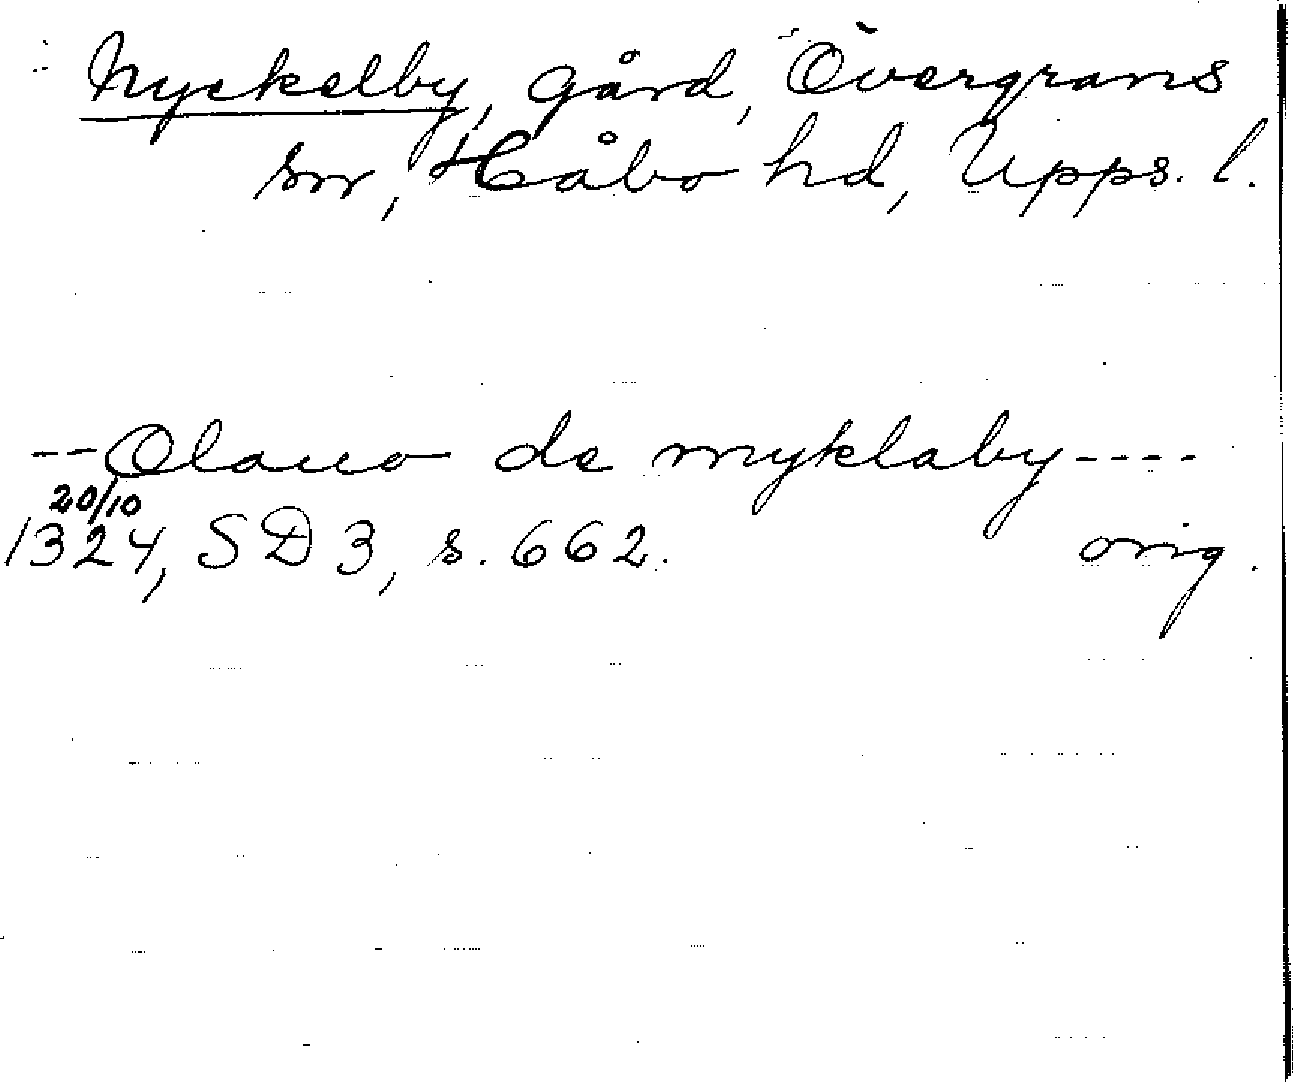 Nyckelby, gård, Övergrans
sn, Håbo hd, Upps. l.
--Olauo de myklaby----
20/10
1324, SD 3, s. 662. orig.